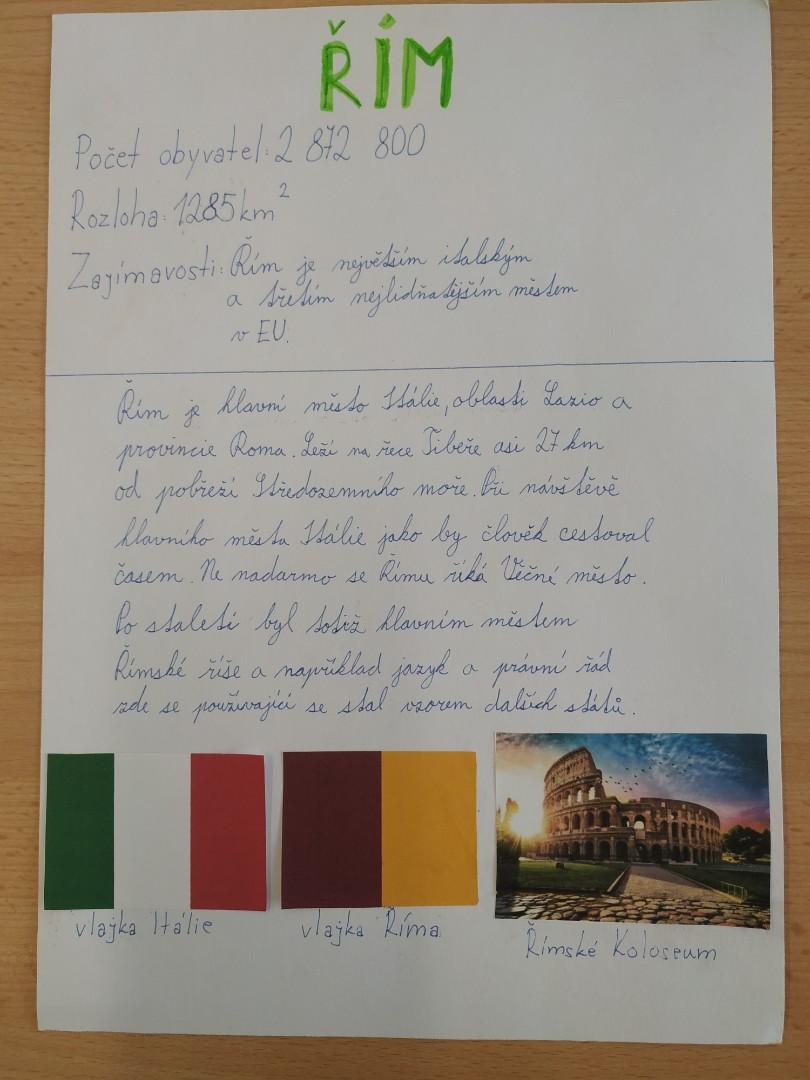 ŘÍM
Počet obyvatel: 2 872 800
Rozloha: 1285 km²
Zajímavosti: Řím je největším italským
a třetím nejlidňatějším městem
v EU.
Řím je hlavní město Itálie, oblasti Lazio a
provincie Roma. Leží na řece Tibeře asi 27 km
od pobřeží Středozemního moře. Při návštěvě
hlavního města Itálie jako by člověk cestoval
časem. Ne nadarmo se Římu říká Věčné město.
Po staletí byl totiž hlavním městem
Římské říše a například jazyk a právní řád
zde se používající se stal vzorem dalších států.
vlajka Itálie
vlajka Říma
Římské Koloseum